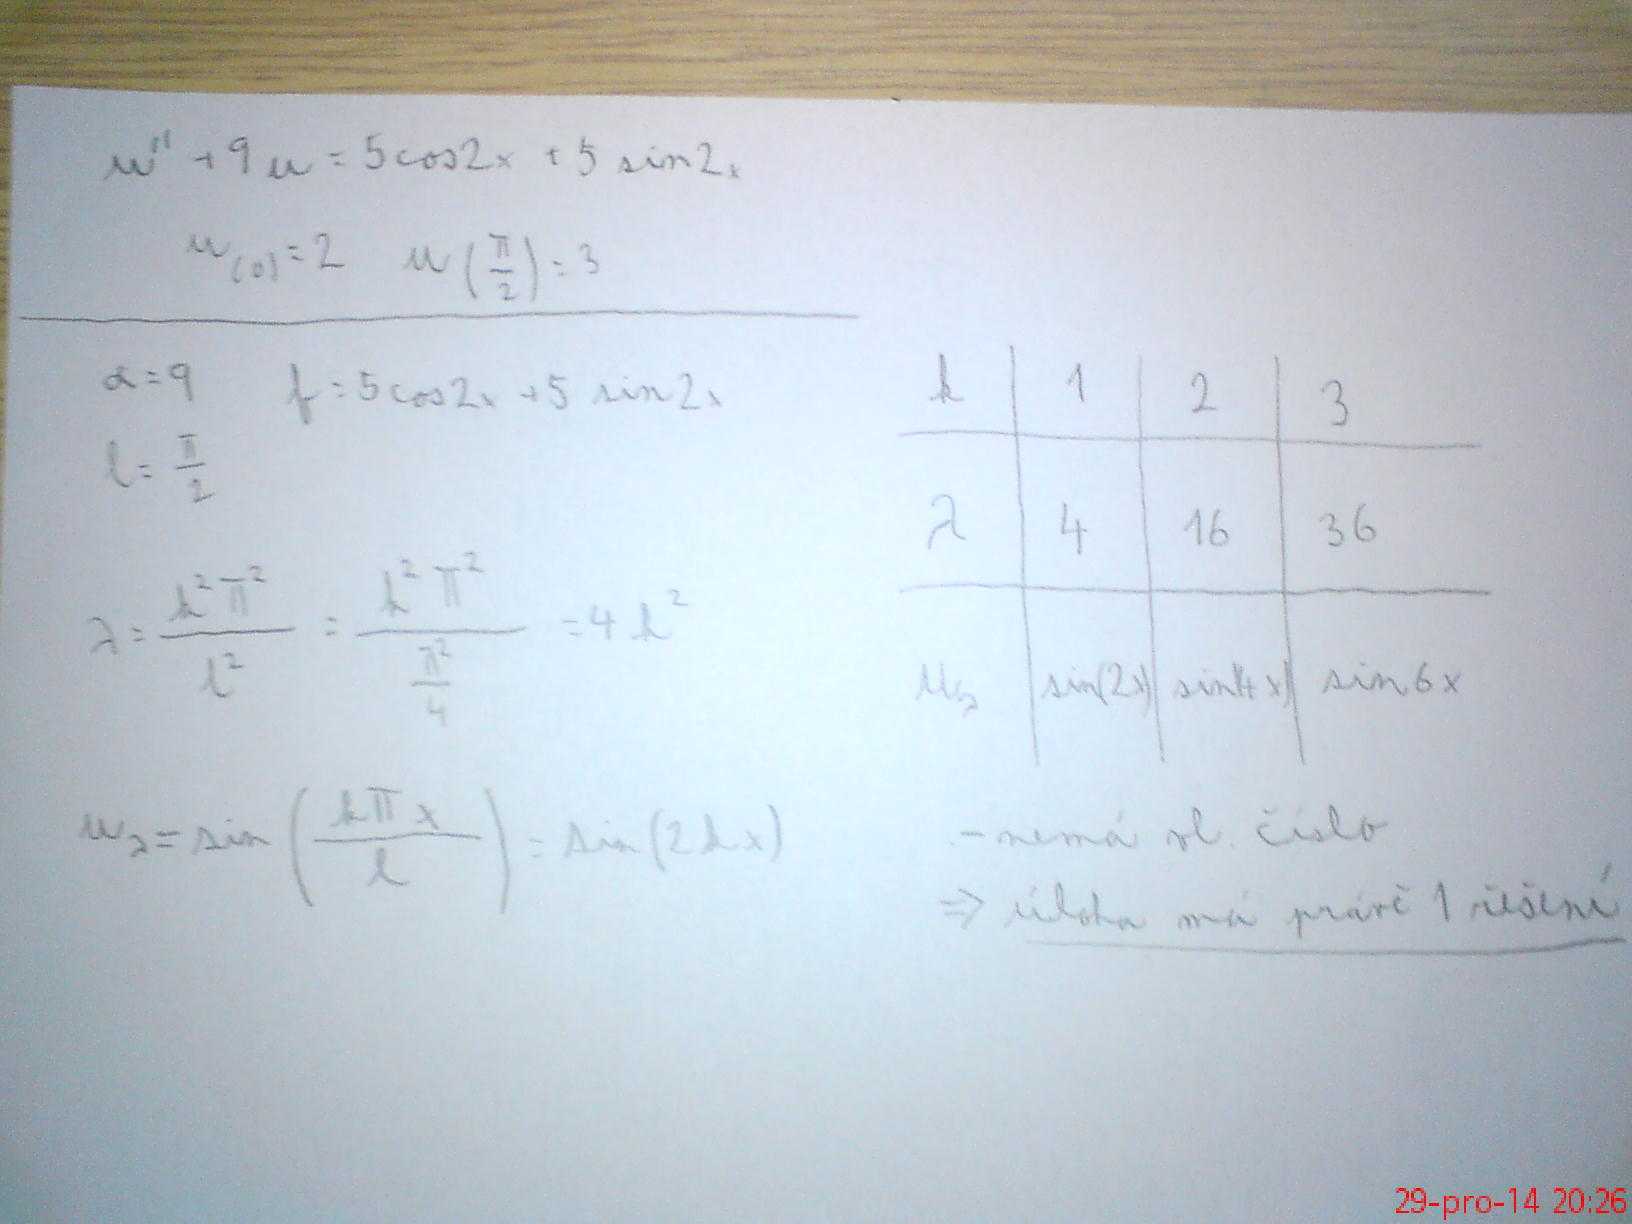 u'' + 9u = 5cos2x + 5 sin2x
u(0) = 2 u(π/2) = 3
α = 9 f = 5cos2x + 5 sin2x
l = π/2
λ = k²π²/l² = k²π²/(π²/4) = 4k²
u_λ = sin(kπx/l) = sin(2kx)
k 1 2 3
λ 4 16 36
u_λ sin(2x) sin(4x) sin6x
- nemá vl. číslo
⇒ úloha má právě 1 řešení
29-pro-14 20:26